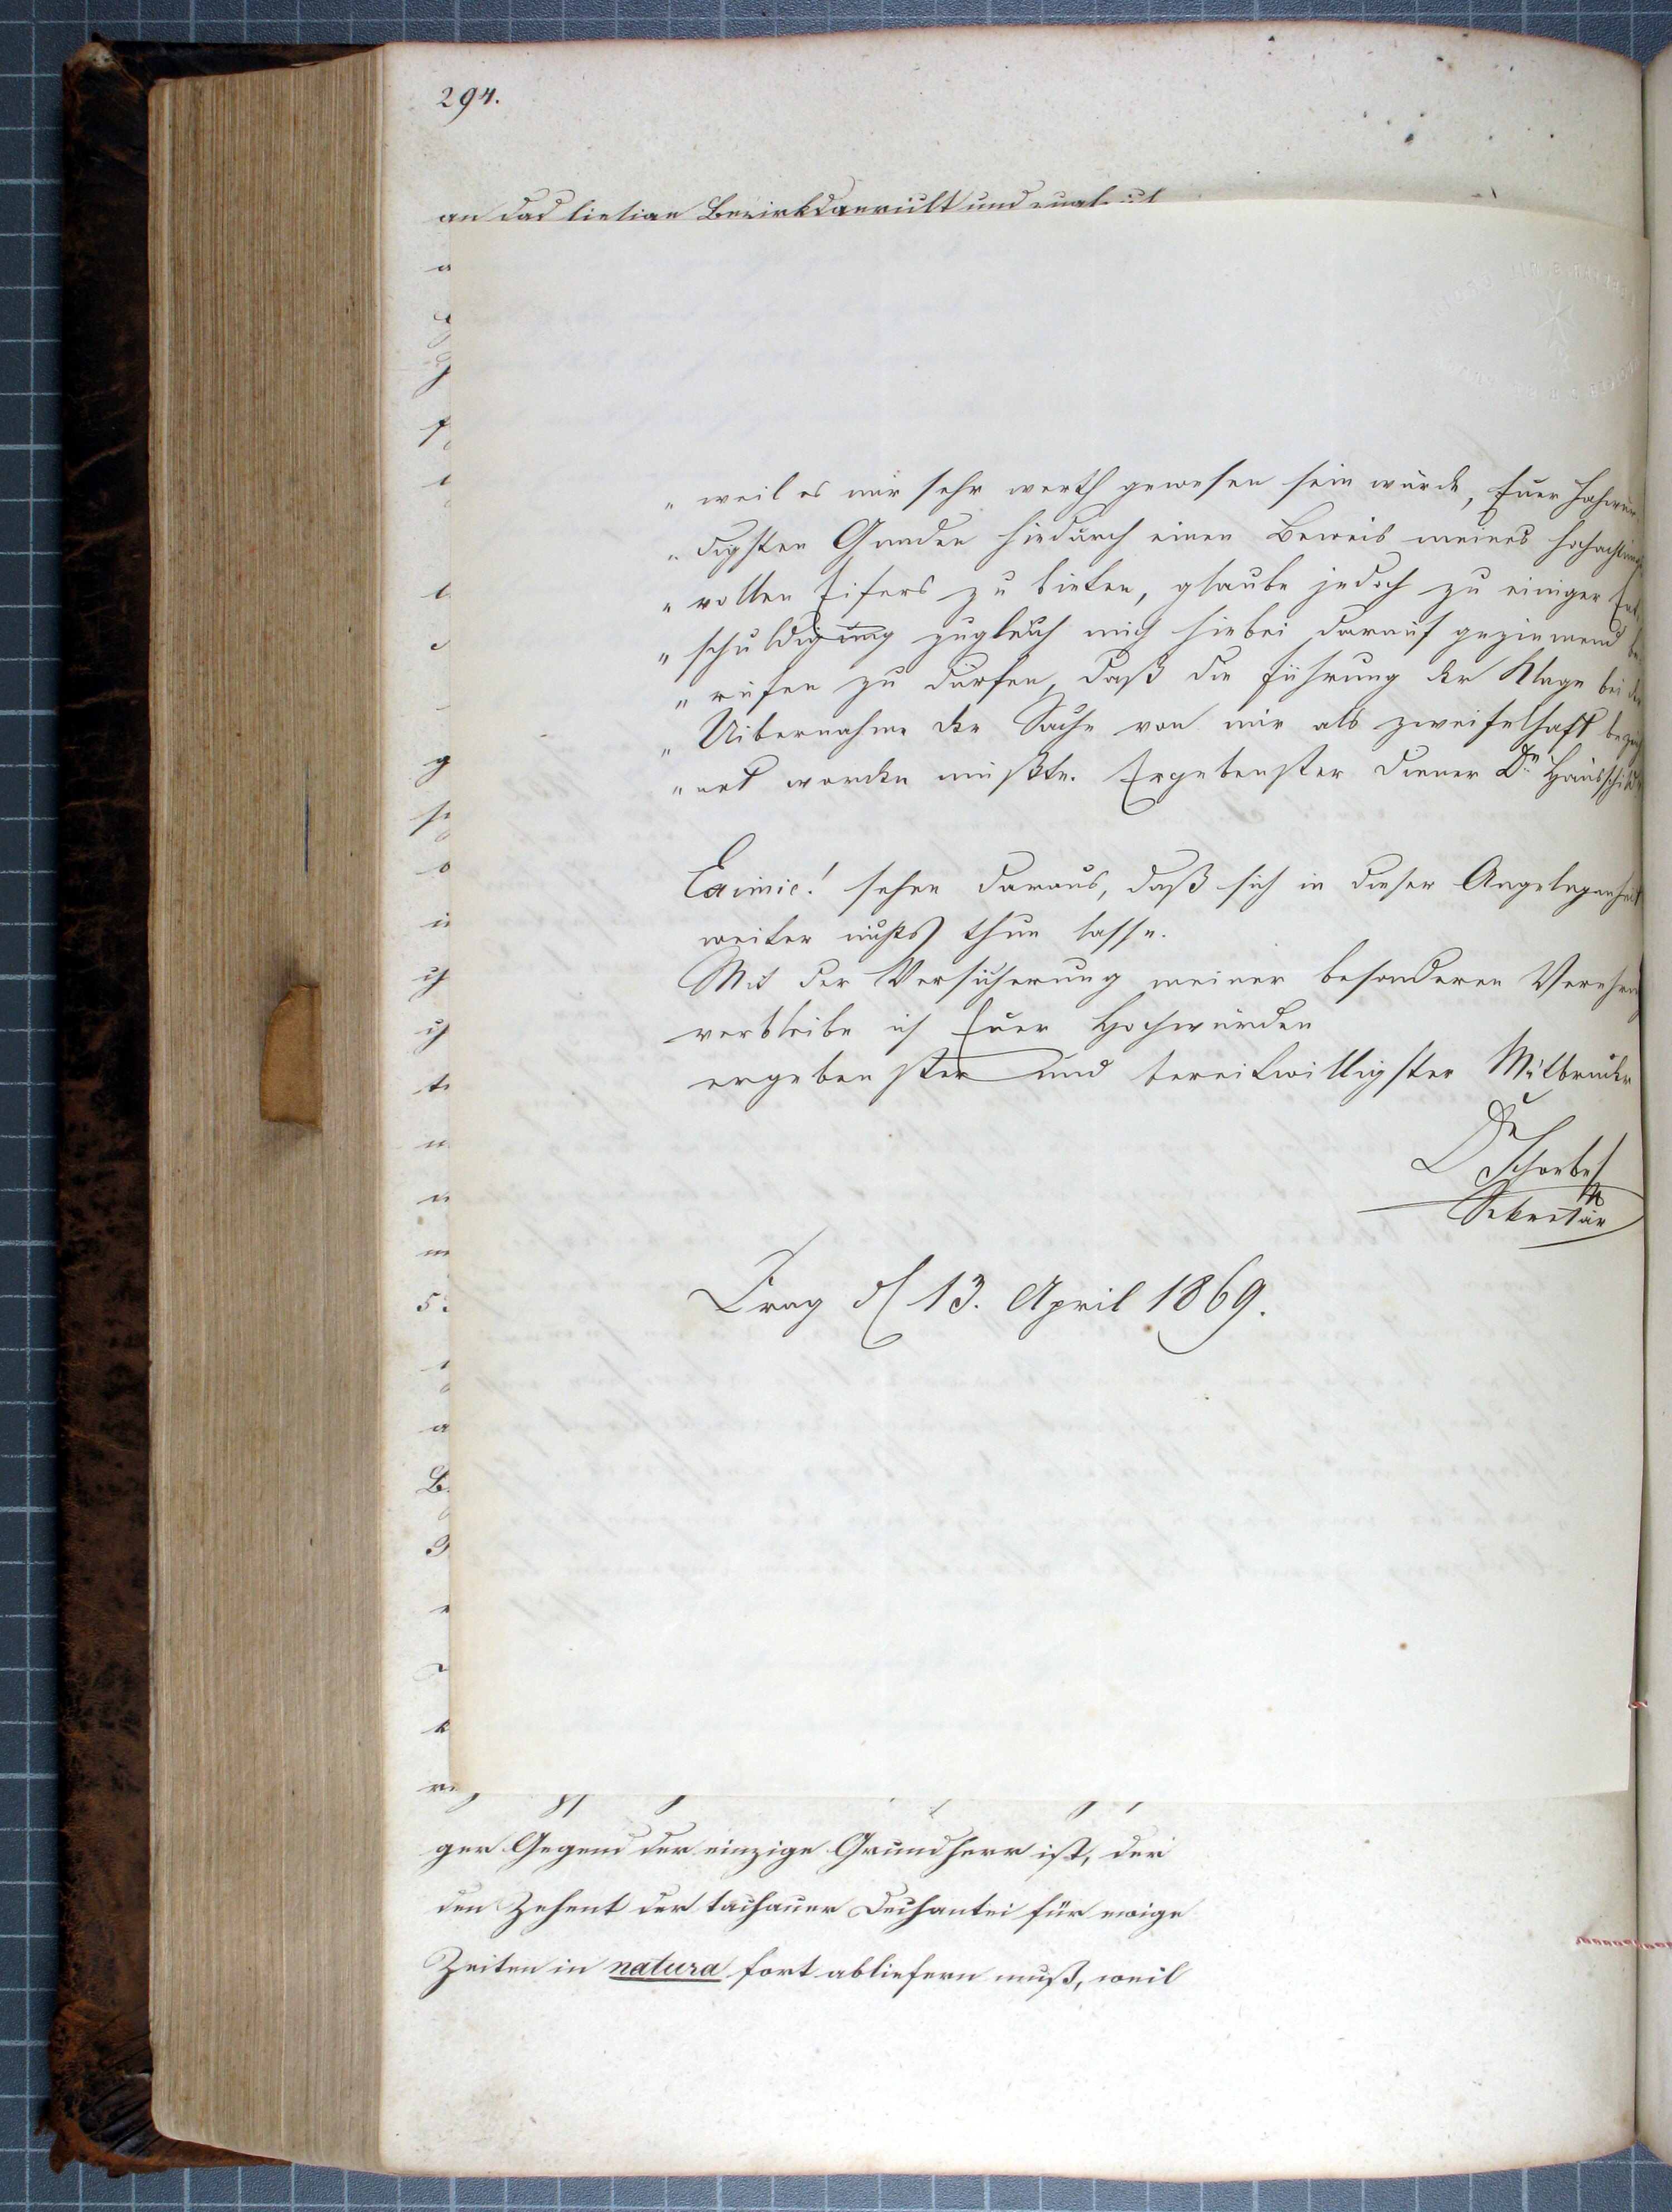 294.
an das
„ weil es mir sehr werth gewesen sein würde, Euer Hochwür
„ digsten Gnaden hiedurch einen Beweis meines hochachtungs
„ vollen Eifers zu bieten, glaube jedoch zu einiger Ent
„ schuldigung zugleich mich hiebei darauf geziemend be
„ rufen zu dürfen, daß die Führung der Klage bei der
„ Uibernahme der Sache von mir als zweifelhaft bezeich
„ net werden mußte. Ergebenster Diener Dr Hausschild
Eximie! sehen daraus, daß sich in dieser Angelegenheit
weiter nichts thun lasse.
Mit der Versicherung meiner besonderen Verehrung
verbleibe ich Euer Hochwürden
ergebenster und bereitwilligster Mitbruder
Dr
Sekretär
Prag d 13. April 1869.
ger Gegend der einzige Grundherr ist, der
den Zehent der tachauer Dechantei für ewige
Zeiten in natura fort abliefern muß, weil